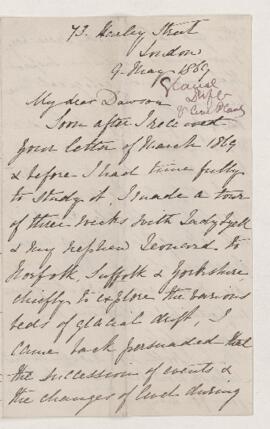 73. Harley Street
London
9 May 1869
Glacial
Drift
& Coal Plants
My dear Dawson
Soon after I received
your letter of March 1869
& before I had time fully
to study it, I made a tour
of three weeks with Lady Lyell
& my nephew Leonard to
Norfolk, Suffolk & Yorkshire,
chiefly to explore the various
beds of glacial drift, I
came back persuaded that
the succession of events &
the changes of level during